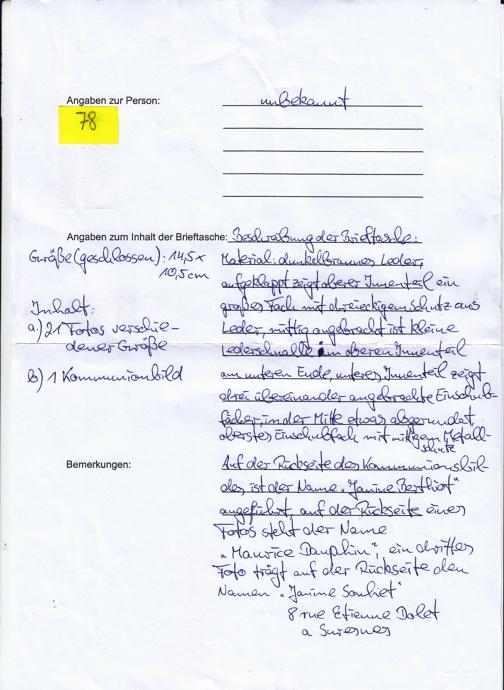 Angaben zur Person: unbekannt
78
Angaben zum Inhalt der Brieftasche: Beschreibung der Brieftasche:
Größe (geschlossen): 14,5 x
10,5 cm
Inhalt:
a.) 21 Fotos verschie-
dener Größe
b.) 1 Kommunionbild
Material: dunkelbraunes Leder,
aufgeklappt zeigt oberer Innenteil ein
großes Fach mit dreieckigem Schutz aus
Leder, mittig angebracht ist kleine
Lederschnalle im oberen Innenteil
am unteren Ende, unteres Innenteil zeigt
drei übereinander angebrachte Einschub-
fächer, in der Mitte etwas abgerundet,
oberstes Einschubfach mit mittigem Metall-
schutz
Bemerkungen:
Auf der Rückseite des Kommunionsbil-
des ist der Name "Janine Berthiot"
angeführt, auf der Rückseite eines
Fotos steht der Name
"Maurice Dauphin", ein drittes
Foto trägt auf der Rückseite den
Namen "Janine
8 rue Etienne Dolet
a Suresnes